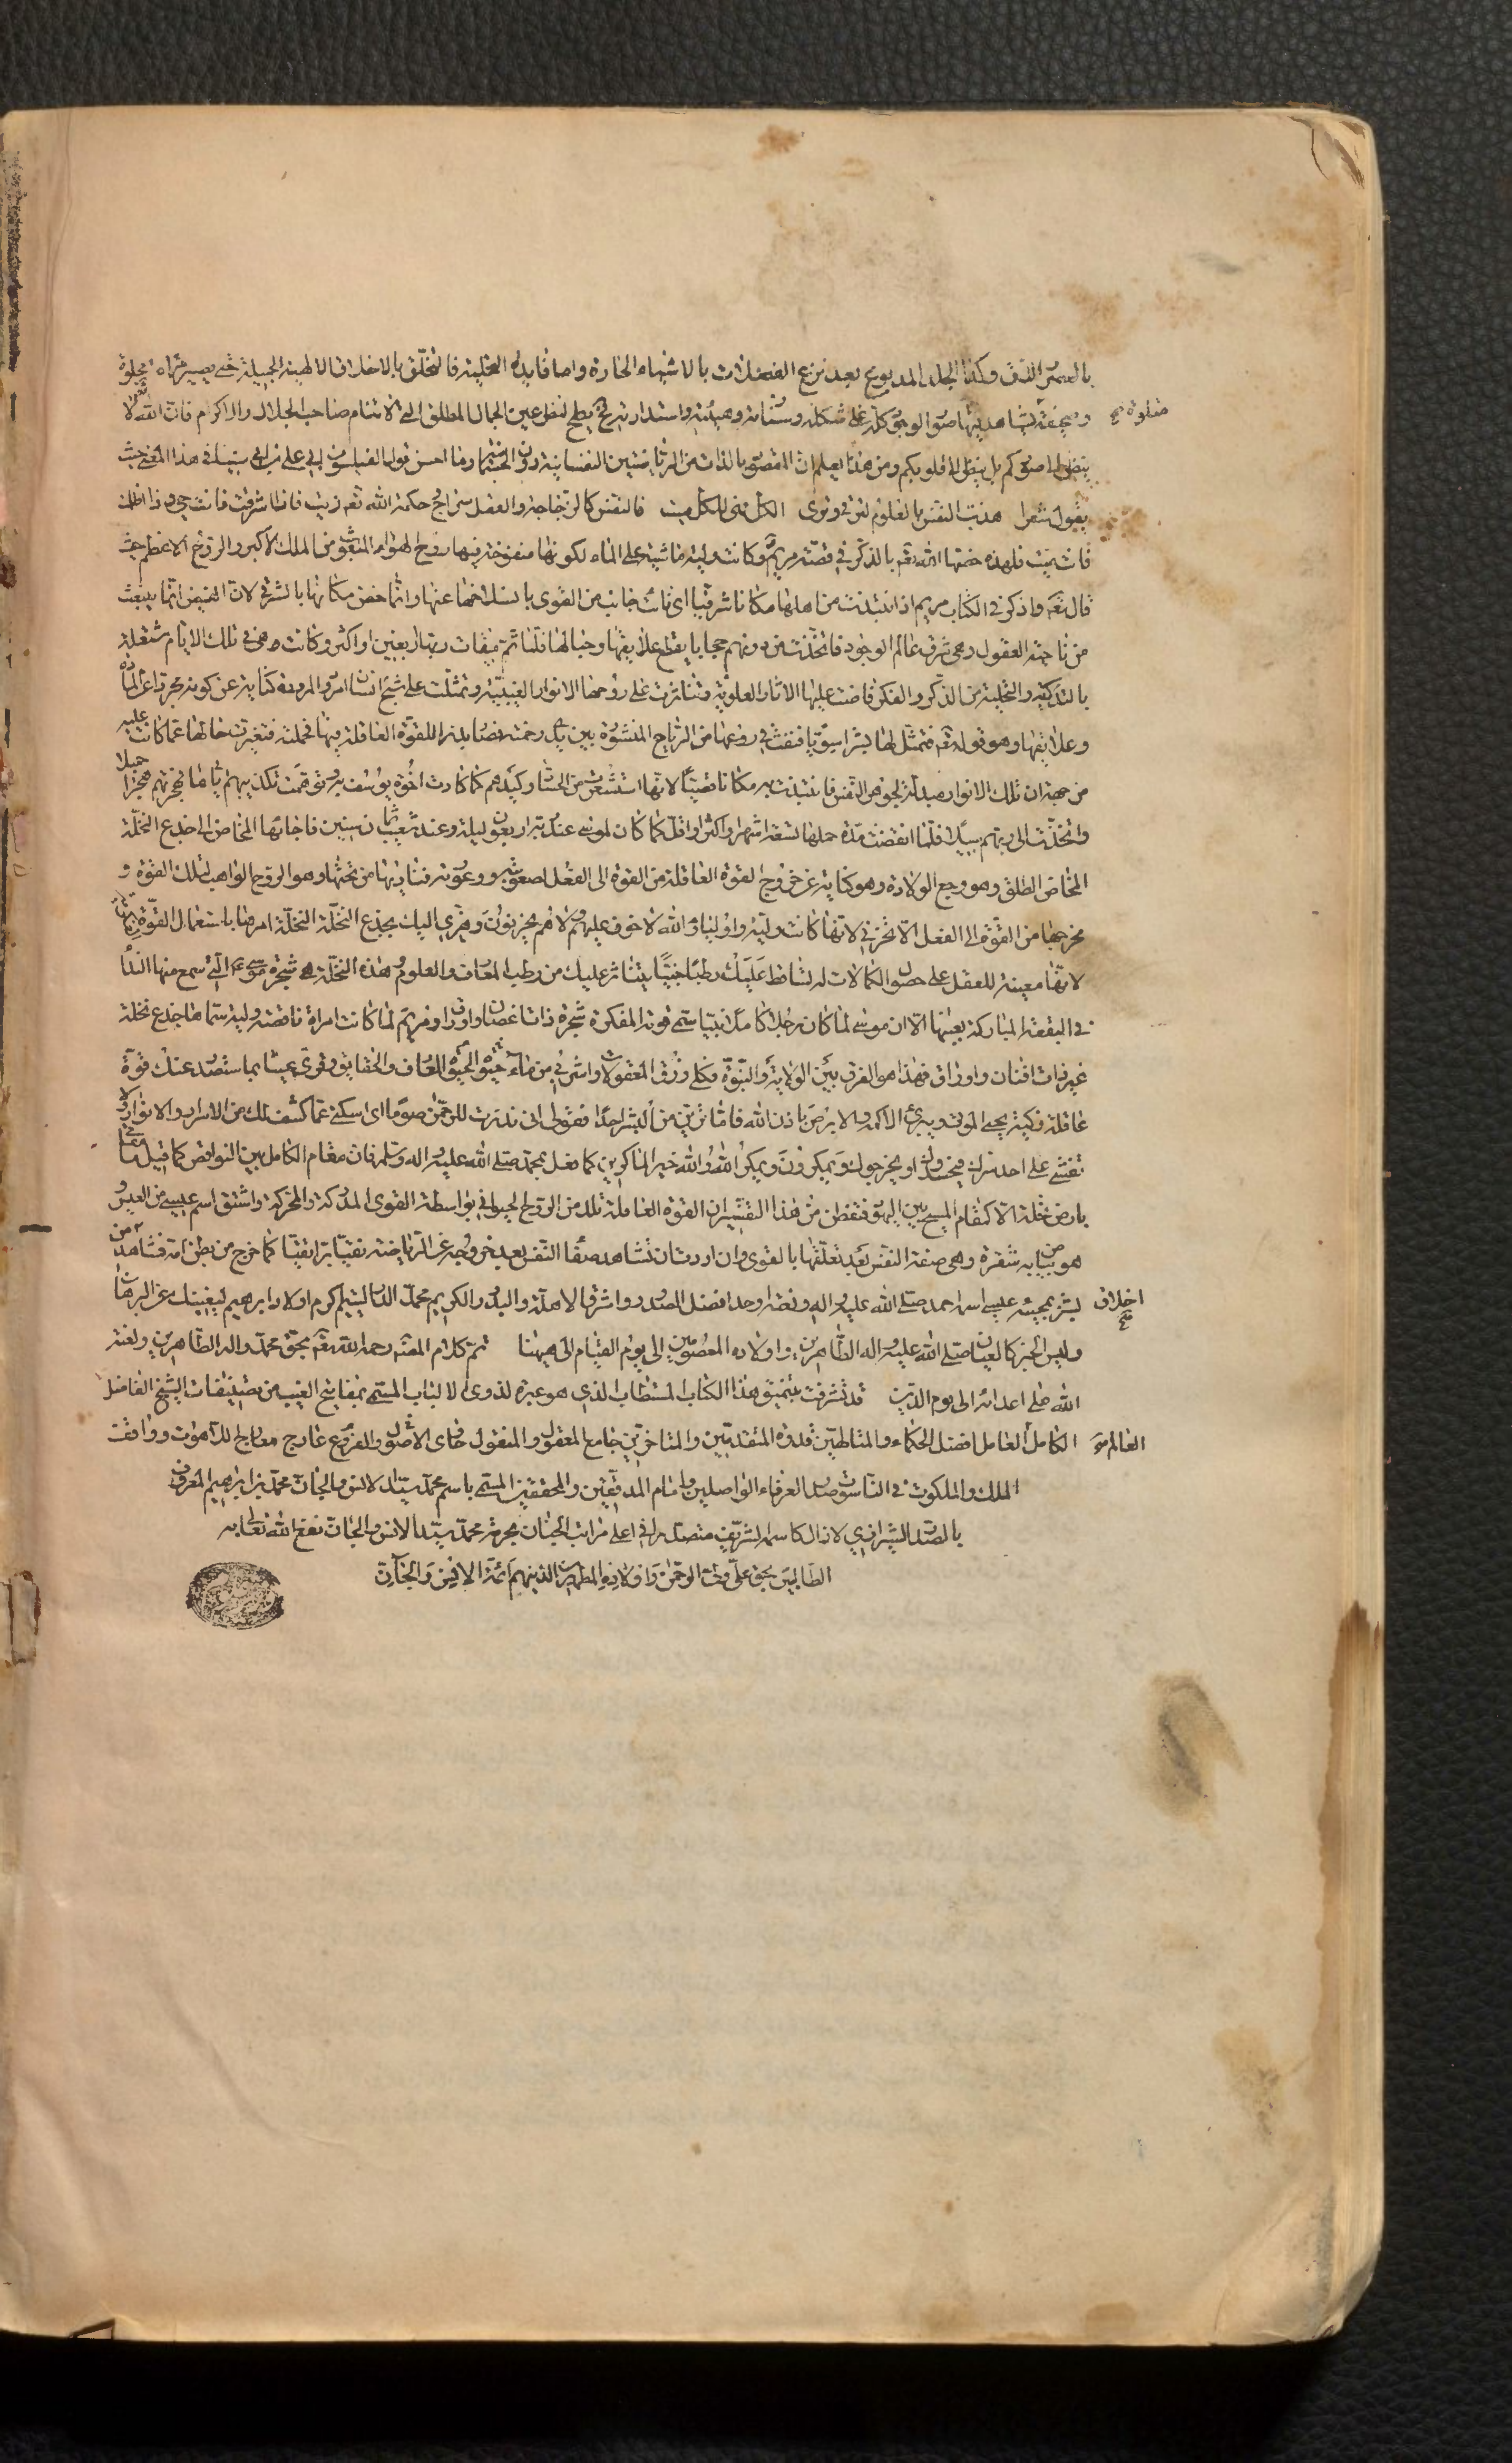 بالعصر والدق وكذا الجلد المدبوغ بعد نزع الفضلات بالاشياء الحارة واما فايدة التحلية فالتخلق بالاخلاق الالهية الجميلة حتى يصير مراة مجلوة
يشاهد فيها صور الوجود كله على شكله وهيئته واستدارته يطلع عين الجمال المطلق صاحب الجلال والاكرام فان الله تعالى لا
ينظر الى صوركم بل ينظر الى قلوبكم ومن هذا يعلم ان المقصود بالذات من الرياضتين النفسانية دون الجسمانية وما احسن قول الفيلسوف ابي علي بن سينا في هذا المعنى حيث
يقول شعرا هذب النفس بالعلوم لترقى وترى الكل فهي للكل بيت فالنفس كالزجاجة والعقل سراج حكمة الله تعه زيت فاذا اشرقت فانت حي واذا اظلمت
فانت ميت فلهذه خصها الله تعه بالذكر في قصة مريم وكانت ولية ماشية على الماء لكونها منفوخة فيها روح الهواء المنعوق من الملك الاكبر والروح الاعظم حيث
قال تعه واذكر في الكتاب مريم اذ انتبذت من اهلها مكانا شرقيا اى نأت جانب من القوى بانسلاخها عنها وانما خص مكانها بالشرق لان الفيض انما ينبعث
من ناحية العقول وهي شرق عالم الوجود فاتخذت من دونهم حجابا بقطع علايقها وحبالها فلما تم ميقات ربها اربعين او اكثر وكانت هي في تلك الايام مشتغلة
بالتذكية والتخلية من الذكر والفكر فاضت عليها الاثار العلوية وتناثرت على روحها الانوار الغيبية وتمثلت على شبح انسان امرد والمردة كناية عن كونه مجردا عن المادة
وعلايقها وهو قوله تعه فتمثل لها بشرا سويا فنفث في روعها من الرياح المنشورة بين يدى رحمته فصار بذرا للقوة العاقلة فيها فحملته فتغيرت حالها عما كانت عليه
من جهة ان تلك الانوار مبدلة لجوهر النفس فانتبذت به مكانا قصيا لانها استشعرت من الحساد وكيدهم كما كادت اخوة يوسف به فهمت تكذيبهم اياها فهجرتهم هجرا جميلا
واتخذت الى ربهم سبيلا فلما انقضت مدة حملها تسعة اشهر او اكثر او اقل كما كان لموسى عند ربه اربعون ليلة وعند شعيب ثمان سنين فاجاءها المخاض الى جذع النخلة
المخاض الطلق وهو وجع الولادة وهو كناية عن خروج القوة العاقلة من القوة الى الفعل لصعوبته ووعوته فناديها من تحتها وهو الروح الواهب لتلك القوة و
مخرجها من القوة الى الفعل الا تحزني لانها كانت ولية واولياء الله لا خوف عليهم ولا هم يحزنون وهزى اليك بجذع النخلة النخلة امر لها باستعمال القوة
لانها معينة للعقل على حصول الكمالات له تساقط عليك رطبا جنيا يتناثر عليك من رطب المعارف والعلوم وهذه النخلة هي شجرة موسى التي سمع منها الندا
في البقعة المباركة بعينها الا ان موسى لما كان رجلا كاملا نبيا سمى قوته المفكرة شجرة ذات اغصان واوراق ومريم لما كانت امراة ناقصة ولية سماها جذع نخلة
غير ذات افنان واوراق فهذا هو الفرق بين الولاية والنبوة فكلي رزق المعقولات واشربي من ماء حيوة المعارف والحقايق وقرى عينا بما ستصدر عنك قوة
عاقلة زكية يحيى الموتى ويبرئ الاكمه والابرص باذن الله فاما ترين من البشر احدا فقولى انى نذرت للرحمن صوما اى اسكتي عما كشف لك من الاسرار والانوار ولا
تفشي على احد سرك فيحسدوك او يخرجوك ويمكرون ويمكر الله والله خير الماكرين كما فعل بمحمد صلى الله عليه واله وسلم فان مقام الكامل بين النواقص كما قيل ما مقامي
بارض نخلة الا كمقام المسيح بين اليهود فتفطن من هذا التفسير ان القوة العاقلة تلد من الروح الحيواني بواسطة القوى المدركة والمحركة واشتق اسم عيسى من العيس و
هو بياض به شقرة وهي صفة النفس بعد تعلقها بالقوى وان اردت ان تشاهد صفا النفس بعد خروجه عن الرياضة نقيا كما خرج من بطن امه فشاهد من
يبشر بمجيئه عيسى اسمه احمد صلى الله عليه واله افضل الصدور واشرف الاهلة والبدور الكريم محمد اكرم اولاد ابرهيم ليغنيك عن البرهان
وليس الخبر كالعيان صلى الله عليه واله الطاهرين واولاده المعصومين الى يوم القيام الى هيهنا تم كلام المصنف رحمه الله تعه بحق محمد واله الطاهرين ولعنة
الله على اعدائه الى يوم الدين قد تشرفت بتنميق هذا الكتاب المستطاب الذي هو عبرة لذوي الالباب المسمى بمفاتيح الغيب من تصنيفات الشيخ الفاضل
العالم الكامل العامل افضل الحكماء والمتالهين قدوة المتقدمين والمتاخرين جامع المعقول والمنقول حاوى الاصول والفروع عارج معارج اللاهوت وواقف
الملك والملكوت في الناسوت صدر العرفاء الواصلين وامام المدققين والمحققين المسمى باسم محمد سيد الانس والجان محمد بن ابراهيم المعروف
بالصدر الشيرازي لا زال كاسمه الشريف متصدرا في اعلى مراتب الجنان بحرمة محمد سيد الانس والجان نفع الله تعالى به
الطالبين بحق على ولى الرحمن واولاده المطهرين الذينهم ائمة الانس والجان
اخلاق